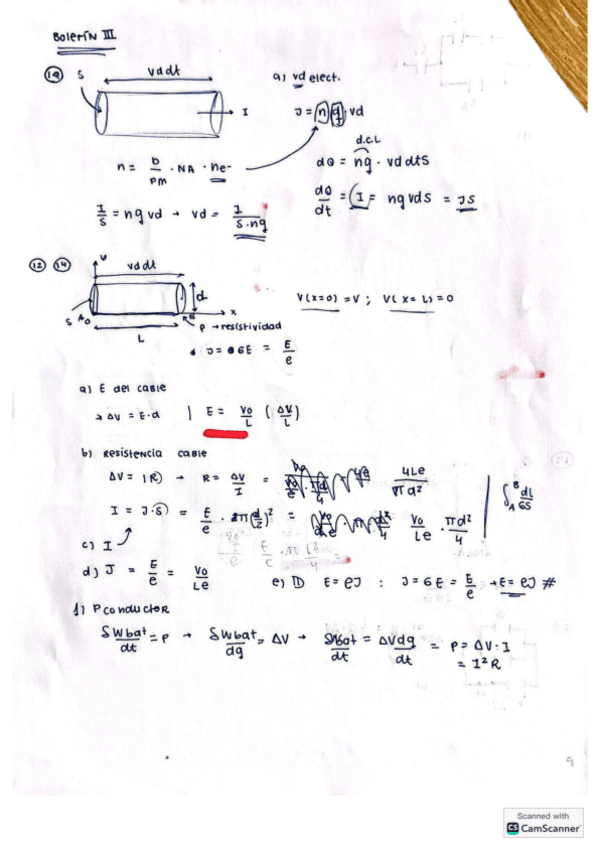 Boletín III
1a S vd dt I
a) vd elect.
J = n q · vd
d.c.L
n = · NA · ne-
dQ = nq · vd dtS
I/S = nq vd → vd = I/(S·nq)
dQ/dt = I = nq vd S = JS
12 1a
vd dt
S A d x
L
ρ → resistividad
V(x=0) = V ; V(x=L) = 0
J = σE = E/e
a) E del cable
→ ΔV = E·d | E = Vo/L (ΔV/L)
b) Resistencia cable
ΔV = IR → R = ΔV/I = 4Le/πd²
∫AB dL/σS
I = J·S = E/e · π(d/2)² = Vo/Le · πd²/4
c) I
d) J = E/e = Vo/Le
e) D E = eJ : J = σE = E/e → E = eJ #
f) P conductor
δWbat/dt = P → δWbat/dq = ΔV → δWbat/dt = ΔVdq/dt = P = ΔV·I
= I²R
9
Scanned with
CS CamScanner